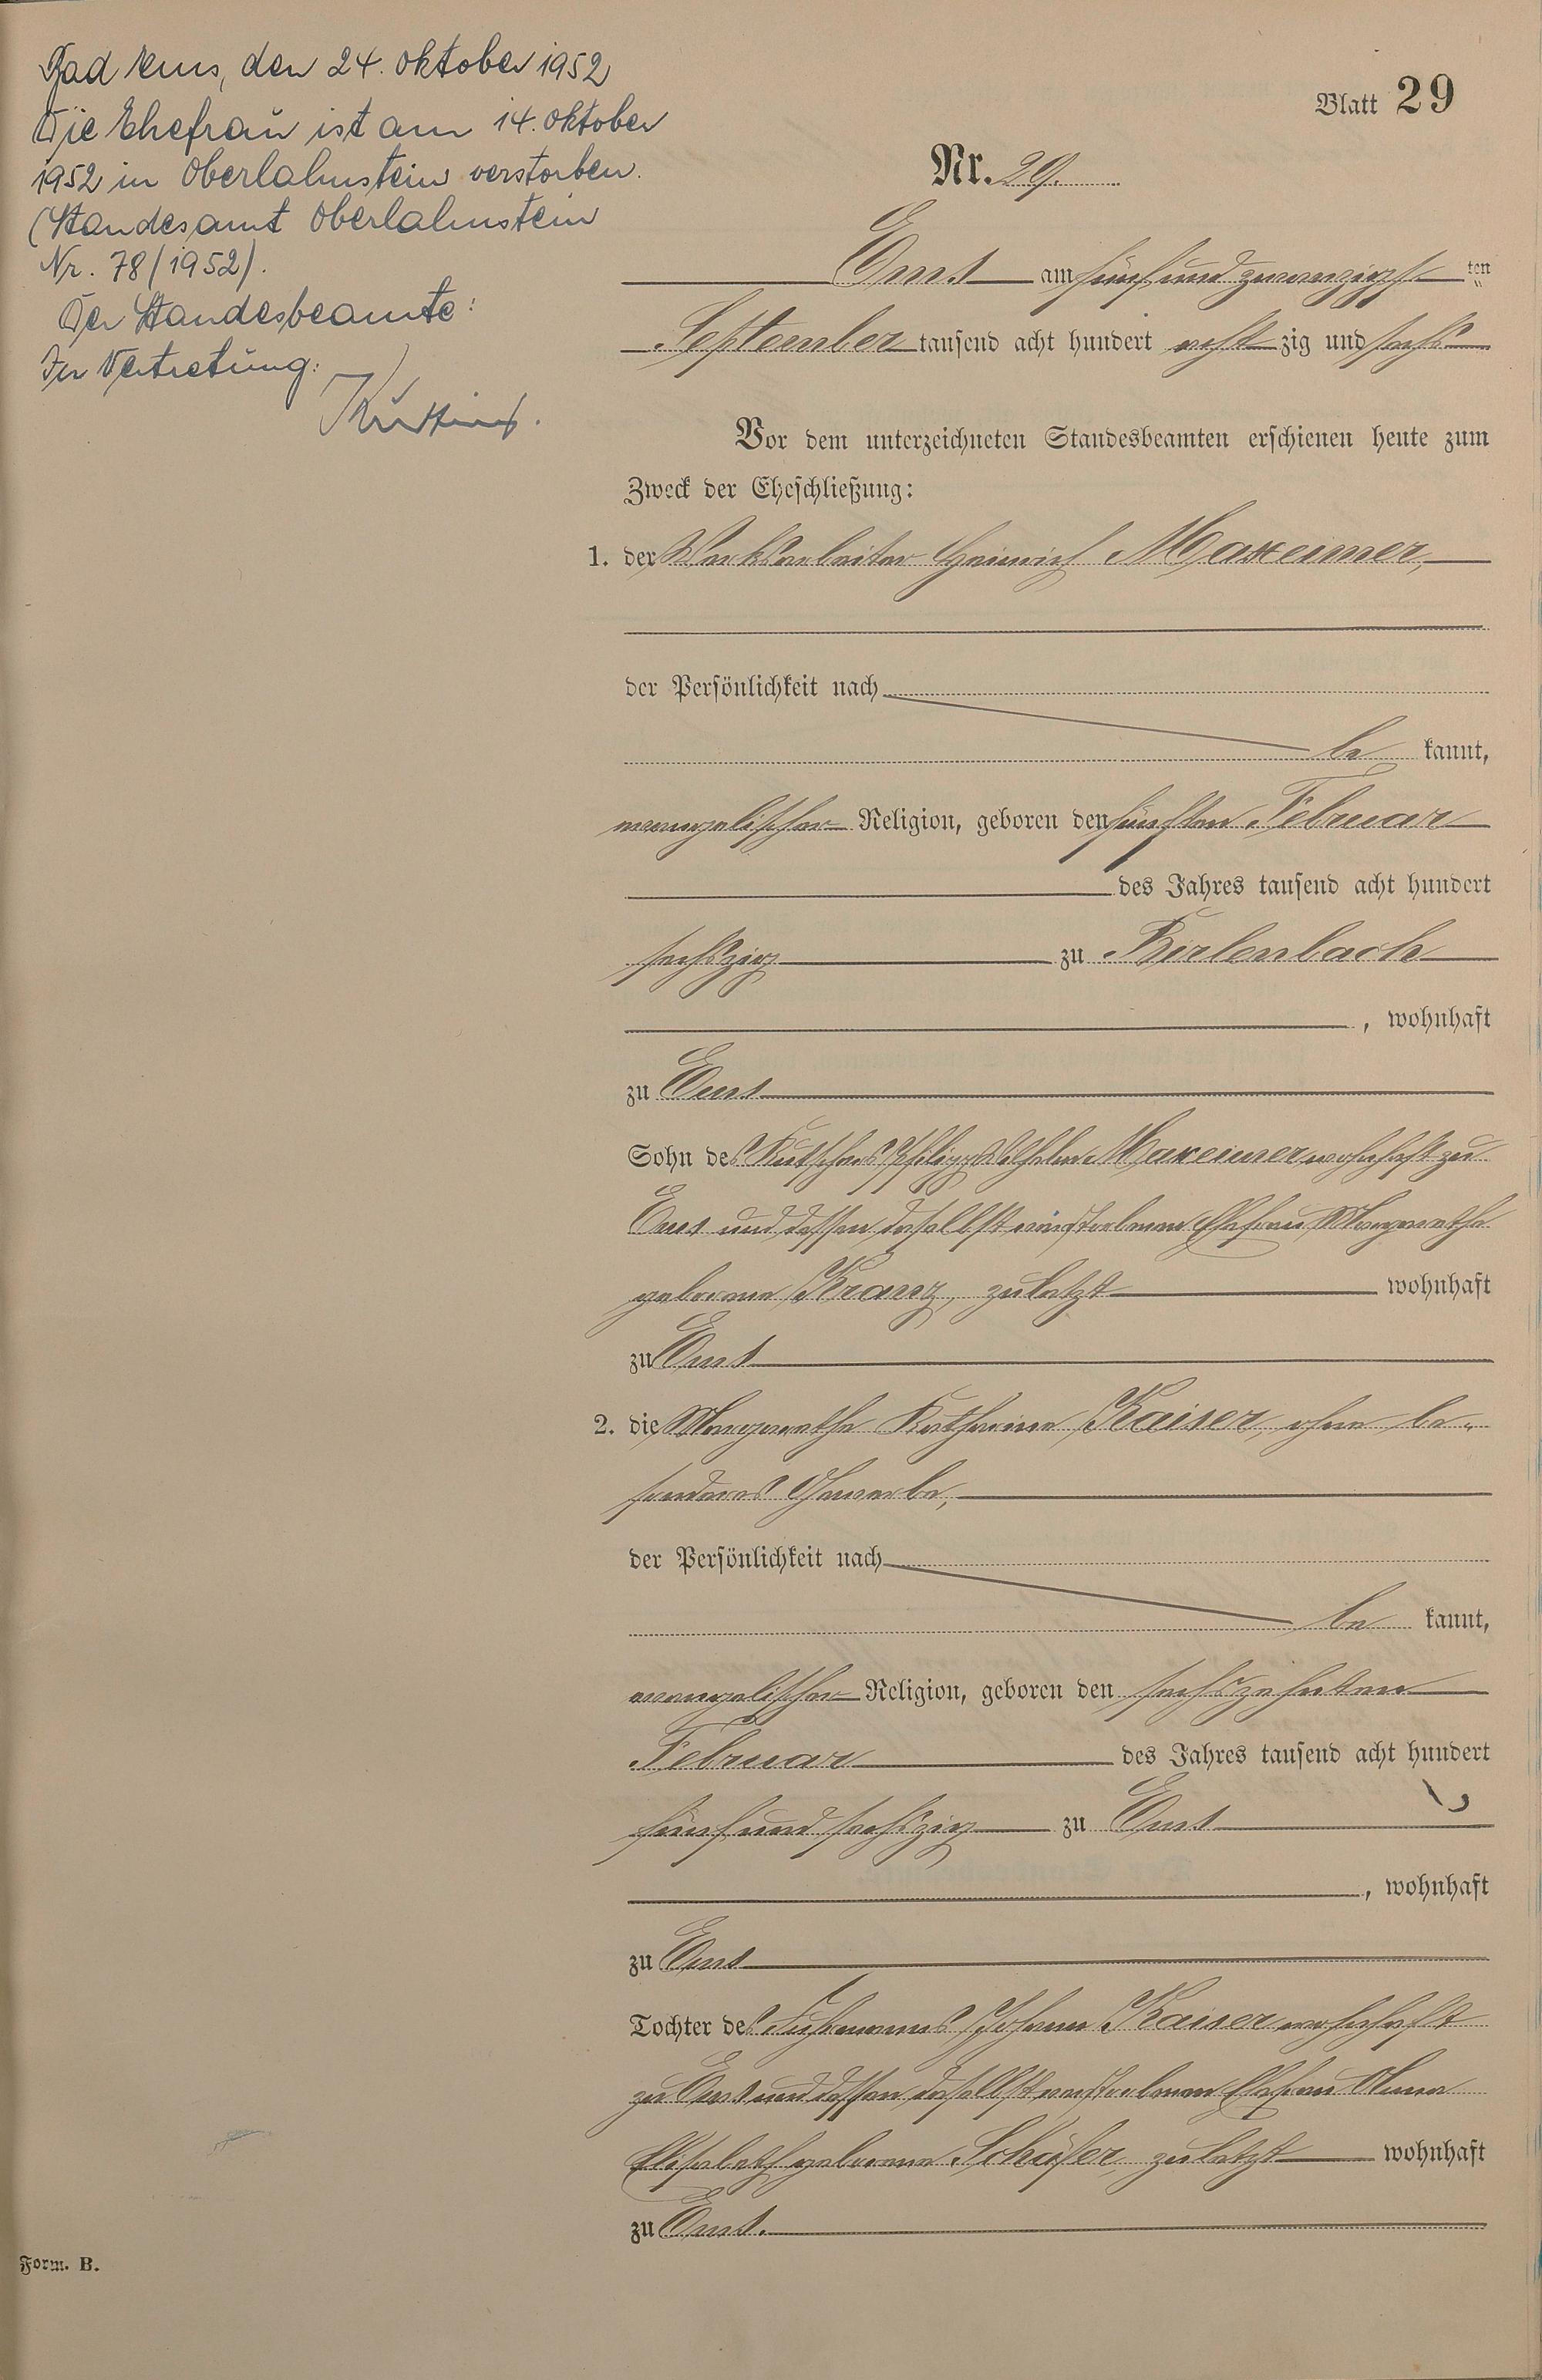 Bad Ems, den 24. Oktober 1952
Die Ehefrau ist am 14. Oktober
1952 in Oberlahnstein verstorben.
(Standesamt Oberlahnstein
Nr. 78/1952).
Der Standesbeamte:
In Vertretung:
Blatt 29
Nr. 29.
Ems am fünfund zwanzigsten
September tausend acht hundert achtzig und sechs
Vor dem unterzeichneten Standesbeamten erschienen heute zum
Zweck der Eheschließung:
1. der Werksarbeiter Heinrich Maxeimer,
der Persönlichkeit nach
bekannt,
evangelischer Religion, geboren den fünften Februar
des Jahres tausend acht hundert
sechszig zu Birlenbach
, wohnhaft
zu Ems
Sohn des Kutschers Philipp Wilhelm Maxeimer wohnhaft zu
Ems und dessen daselbst verstorbenen Ehefrau Margarethe
geborene Kranz, zuletzt wohnhaft
zu Ems
2. die Margarethe Katharine Kaiser, ohne be-
sonderes Gewerbe,
der Persönlichkeit nach
bekannt,
evangelischer Religion, geboren den sechszehnten
Februar des Jahres tausend acht hundert
fünf und sechszig zu Ems
, wohnhaft
zu Ems
Tochter des Fuhrmanns Johann Kaiser wohnhaft
zu Ems und dessen daselbst verstorbenen Ehefrau Anna
Elisabeth geborene Schäfer, zuletzt wohnhaft
zu Ems.
Form. B.